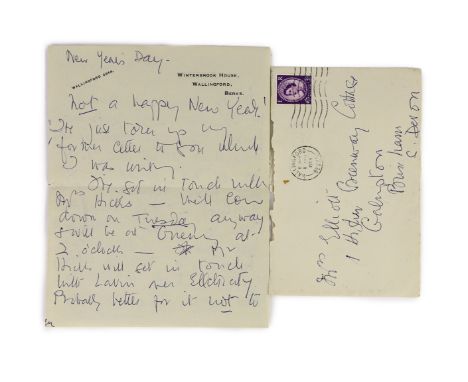 New Year's Day -
WALLINGFORD
WINTERBROOK HOUSE,
WALLINGFORD,
BERKS.
Not a happy New Year!
I've just torn up my
former letter to you which
I was writing.
I've got in touch with
Mrs Hicks - will come
down on Tuesday anyway
& will be at Greenway at
2 o'clock - Mr
Hicks will get in touch
with Lavin over Electricity
Probably better for it not to
Mrs Elliott
1 Higher Greenway Cottage
Galmpton
Brixham
S. Devon